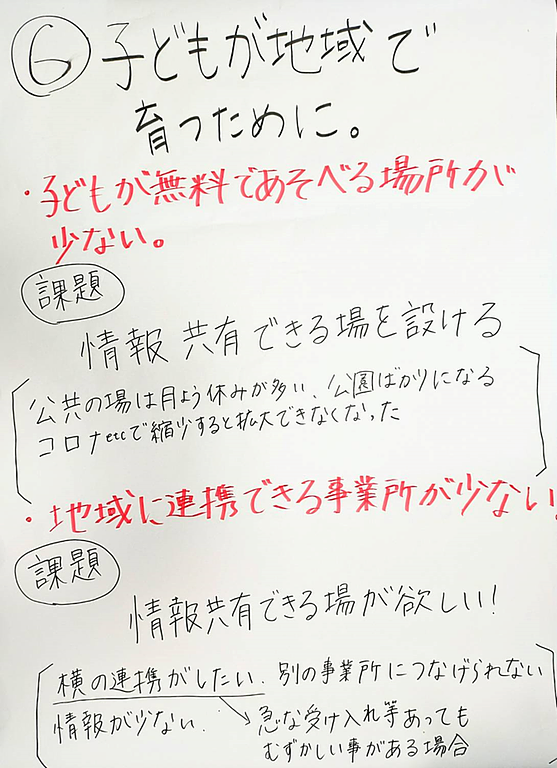 ⑥ 子どもが地域で
育つために。
・子どもが無料であそべる場所が
少ない。
課題
情報共有できる場を設ける
公共の場は月よう休みが多い、公園ばかりになる
コロナetcで縮少すると拡大できなくなった
・地域に連携できる事業所が少ない。
課題
情報共有できる場が欲しい!
横の連携がしたい. 別の事業所につなげられない
情報が少ない. 急な受け入れ等あっても
むずかしい事がある場合